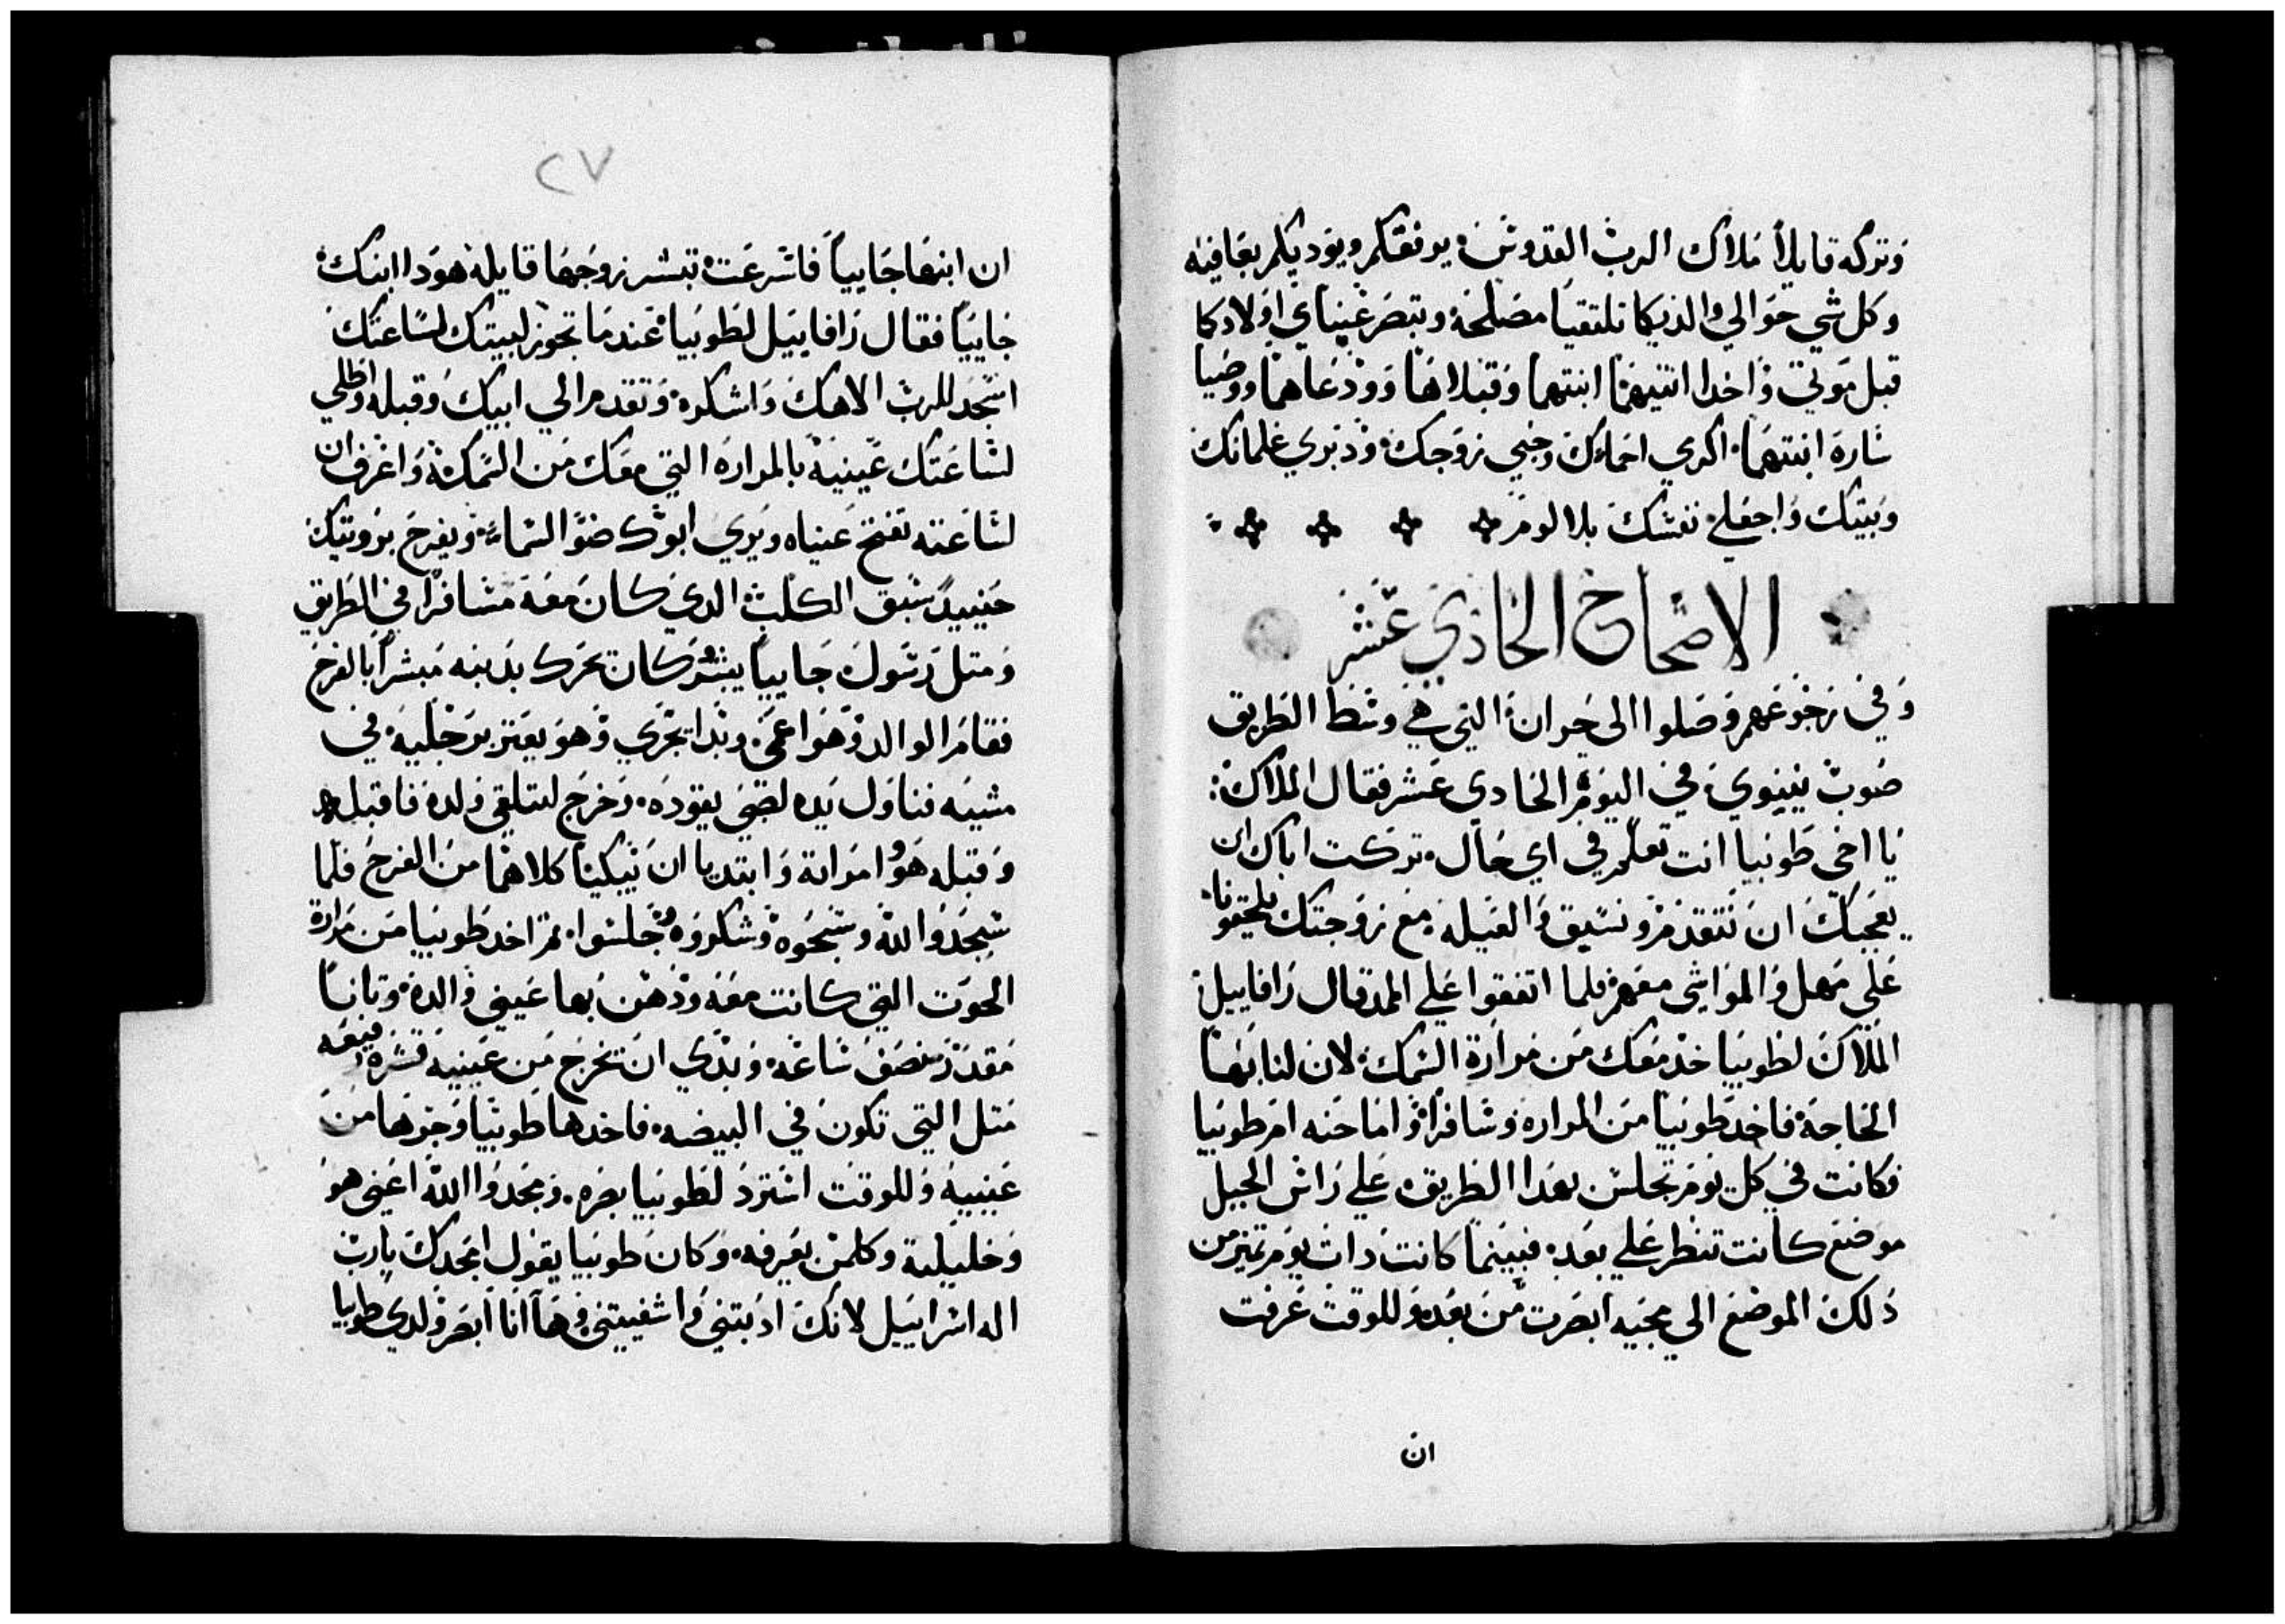 وتركه قايلاً ملاك الرب القدوس يرفقكم ويوديكم بعافيه
وكل شي حوالي والديكما تلتقيا مصلحه وتبصر عيناي اولادكما
قبل موتي واخدا اتنيهما ابنتهما وقبلاها وودعاهما ووصيا
ساره ابنتهما اكرمي احماءك وحبي زوجك ودبري غلمانك
وبيتك واجعلي نفسك بلا لوم
الاصحاح الحادي عشر
وفي رجوعهم وصلوا الى حران التي هي وسط الطريق
صوب نينوي في اليوم الحادي عشر فقال الملاك
يا اخي طوبيا انت تعلم في اي حال تركت اباك ان
يعجبك ان نتقدم ونسبق والعيله مع زوجتك يلحقونا
علي مهل والمواشي معهم فلما اتفقوا علي المد قال رافاييل
الملاك لطوبيا خد معك من مرارة السمك لان لنا بها
الحاجة فاخد طوبيا من المراره وسافرا واما حنه ام طوبيا
فكانت في كل يوم تجلس بهدا الطريق علي راس الجبل
موضع كانت تنظر علي بعد فبينما كانت دات يوم تميز من
دلك الموضع الى مجيه ابصرت من بعد وللوقت عرفت
ان
٢٧
ان ابنها جايياً فاسرعت تبشر زوجها قايله هودا ابنك
جايياً فقال رافاييل لطوبيا عندما تجوز لبيتك لساعتك
اسجد للرب الاهك واشكره وتقدم الي ابيك وقبله واطلي
لساعتك عينيه بالمراره التي معك من السمكة واعرف ان
لساعته تفتح عيناه ويري ابوك ضو السماء ويفرح برويتك
حينيدٍ سبق الكلب الدي كان معه مسافراً في الطريق
ومتل رسول جايياً يبشر كان تحرك بدنبه مبشراً بالفرح
فقام الوالد وهو اعمى وبدا يجري وهو يعتر برجليه في
مشيه فناول يده لصبي يقوده وخرج ليتلقي ولده فاقبله
وقبله هو وامراته وابتديا ان يبكيا كلاهما من الفرح فلما
سجدوا لله وسبحوه وشكروه وجلسوا تم اخد طوبيا من مرارة
الحوت التي كانت معه ودهن بها عيني والده وتانيا
مقدار نصف ساعه وبدي ان تخرج من عينيه قشره رفيعه
متل التي تكون في البيضه فاخدها طوبيا وجرها من
عينيه وللوقت استرد لطوبيا بصره ومجدوا الله اعني هو
وخليلته وكلمن يعرفه وكان طوبيا يقول امجدك يارب
اله اسراييل لانك ادبتني واشفيتني وها انا ابصر ولدي طوبيا